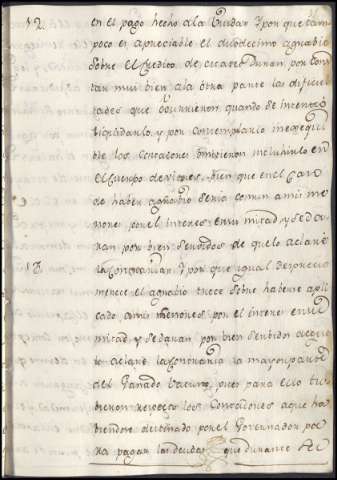 12. en el pago hecho ala Ynˢidad Y por que tam
poco es apreciable el duodecimo agravio
sobre el credito de Duran, por cons
tar mui bien ala otra parte las dificul
tades que ocurrieron quando se intentó
liquidarlo y por contemplarlo inexequi
ble los Contadores omitieron incluirlo en
el Cuerpo de vienes, bien que en el caso
de haber agravio seria comun amis me
nores por el interes en su mitad, y se da
ran por bien servidos de que lo aclare
13. la contraria: Y por que igual desprecio
merece el agravio trece sobre haberse apli
cado amis menores por el interes en su
mitad, y se daran por bien servidos de que
lo aclare la contraria la mayor parte
del Ganado Vacuno, pues para ello tu
bieron respecto los Contadores a que ha
biendose destinado por el Governador pa
ra pagar las deudas que durante